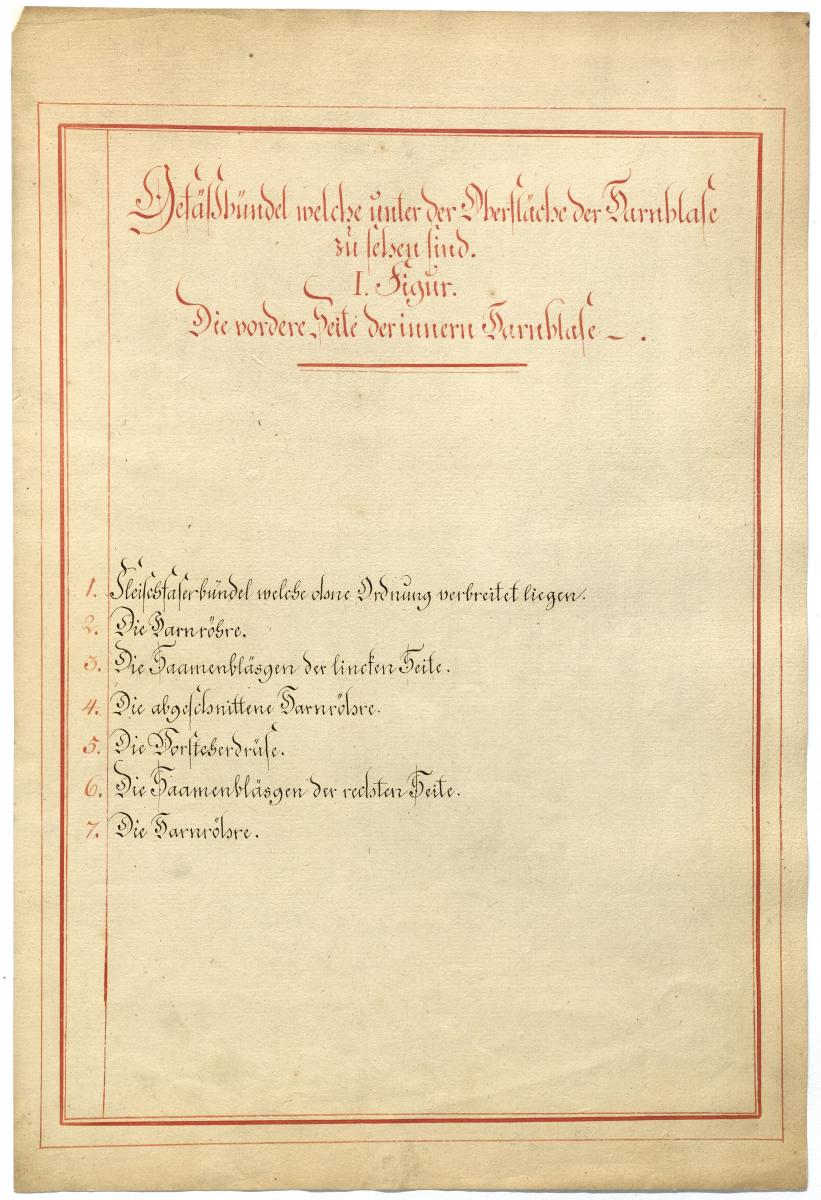 Gefäßbündel welche unter der Oberfläche der Harnblase
zu sehen sind.
I. Figur.
Die vordere Seite der innern Harnblase – .
1. Fleischfaserbündel welche ohne Ordnung verbreitet liegen.
2. Die Harnröhre.
3. Die Saamenbläsgen der lincken Seite.
4. Die abgeschnittene Harnröhre.
5. Die Vorsteherdrüse.
6. Die Saamenbläsgen der rechten Seite.
7. Die Harnröhre.